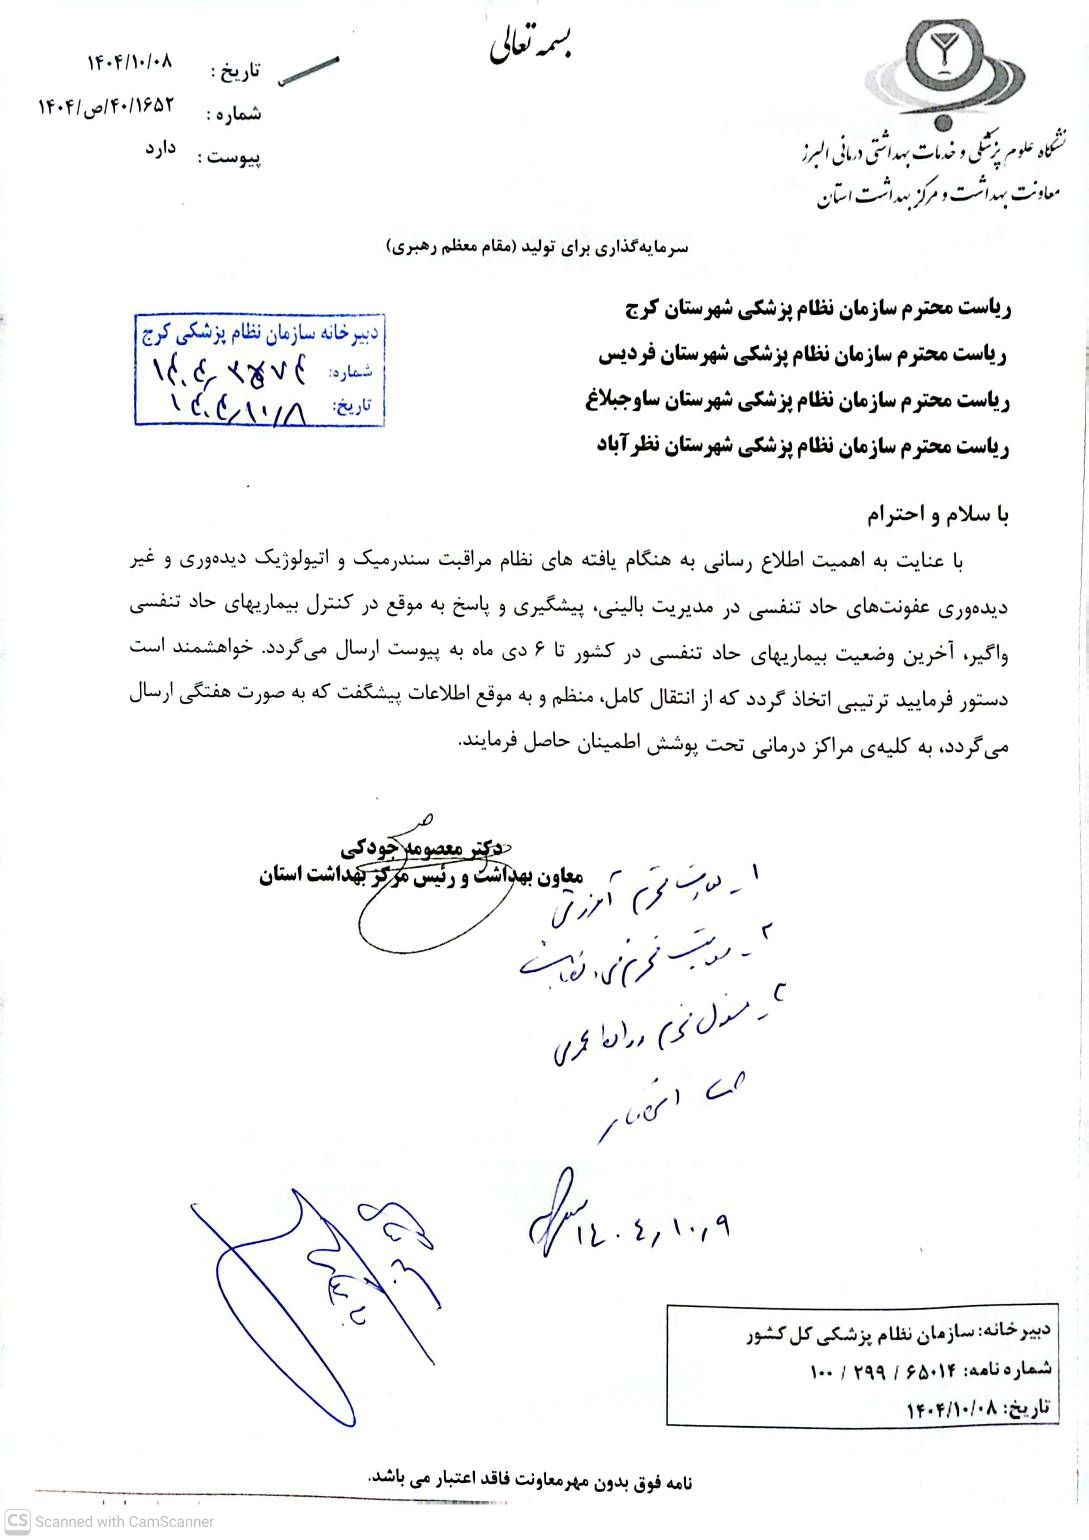 بسمه تعالی
تاریخ : ۱۴۰۴/۱۰/۰۸
شماره : ۱۴۰۴/ص/۴۰/۱۶۵۲
پیوست : دارد
نشگاه علوم پزشکی و خدمات بهداشتی درمانی البرز
معاونت بهداشت و مرکز بهداشت استان
سرمایه‌گذاری برای تولید (مقام معظم رهبری)
ریاست محترم سازمان نظام پزشکی شهرستان کرج
ریاست محترم سازمان نظام پزشکی شهرستان فردیس
ریاست محترم سازمان نظام پزشکی شهرستان ساوجبلاغ
ریاست محترم سازمان نظام پزشکی شهرستان نظرآباد
دبیرخانه سازمان نظام پزشکی کرج
شماره:
تاریخ: ۱۴۰۴/۱۰/۸
با سلام و احترام
با عنایت به اهمیت اطلاع رسانی به هنگام یافته های نظام مراقبت سندرمیک و اتیولوژیک دیده‌وری و غیر
دیده‌وری عفونت‌های حاد تنفسی در مدیریت بالینی، پیشگیری و پاسخ به موقع در کنترل بیماریهای حاد تنفسی
واگیر، آخرین وضعیت بیماریهای حاد تنفسی در کشور تا ۶ دی ماه به پیوست ارسال می‌گردد. خواهشمند است
دستور فرمایید ترتیبی اتخاذ گردد که از انتقال کامل، منظم و به موقع اطلاعات پیشگفت که به صورت هفتگی ارسال
می‌گردد، به کلیه‌ی مراکز درمانی تحت پوشش اطمینان حاصل فرمایند.
دکتر معصومه جودکی
معاون بهداشت و رئیس مرکز بهداشت استان
۱ـ معاونت محترم آموزشی
۲ـ معاونت محترم
۳ـ مسئول محترم روابط عمومی
جهت
۱۴۰۴/۱۰/۹
دبیرخانه: سازمان نظام پزشکی کل کشور
شماره نامه: ۶۵۰۱۴ / ۲۹۹ / ۱۰۰
تاریخ: ۱۴۰۴/۱۰/۰۸
نامه فوق بدون مهرمعاونت فاقد اعتبار می باشد.
CS Scanned with CamScanner